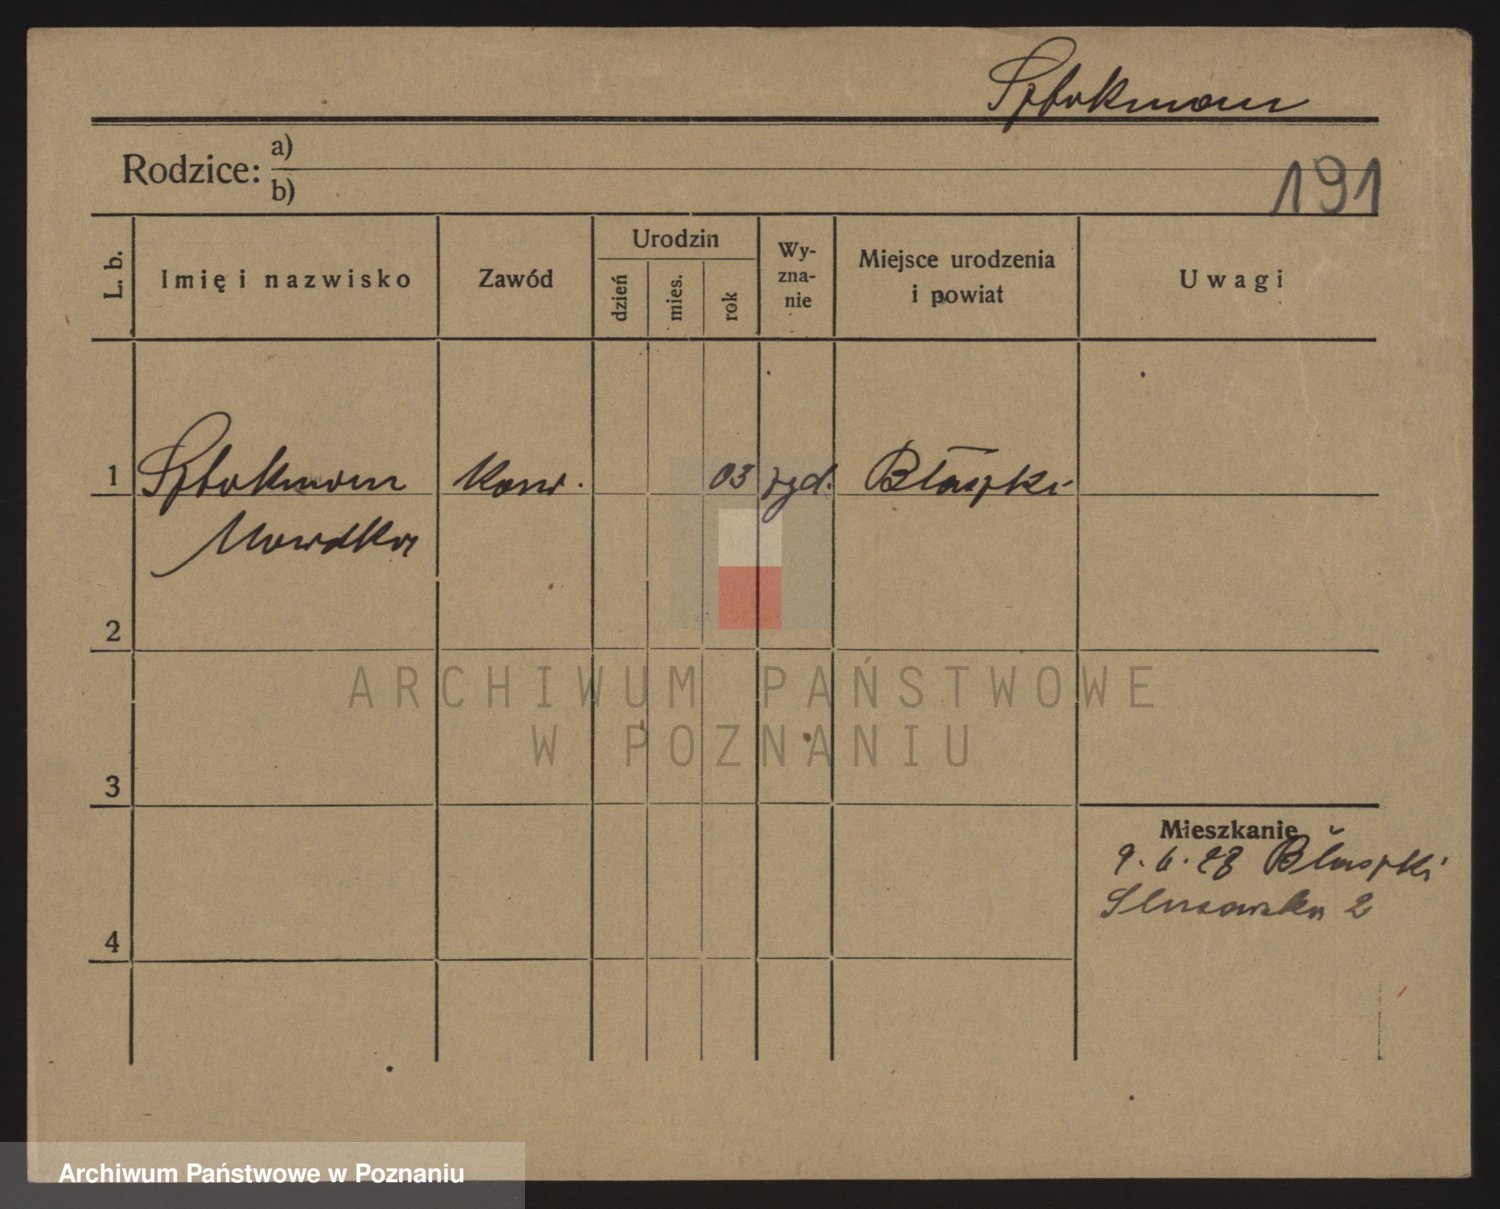 Sztokmann
Rodzice: a)
b)
191
L. b.
Imię i nazwisko
Zawód
Urodzin
dzień
mies.
rok
Wy-
zna-
nie
Miejsce urodzenia
i powiat
Uwagi
1 03 żyd. Błaszki
2
3
4
Mieszkanie
9. 6. 28 Błaszki
2
ARCHIWUM PAŃSTWOWE
W POZNANIU
Archiwum Państwowe w Poznaniu